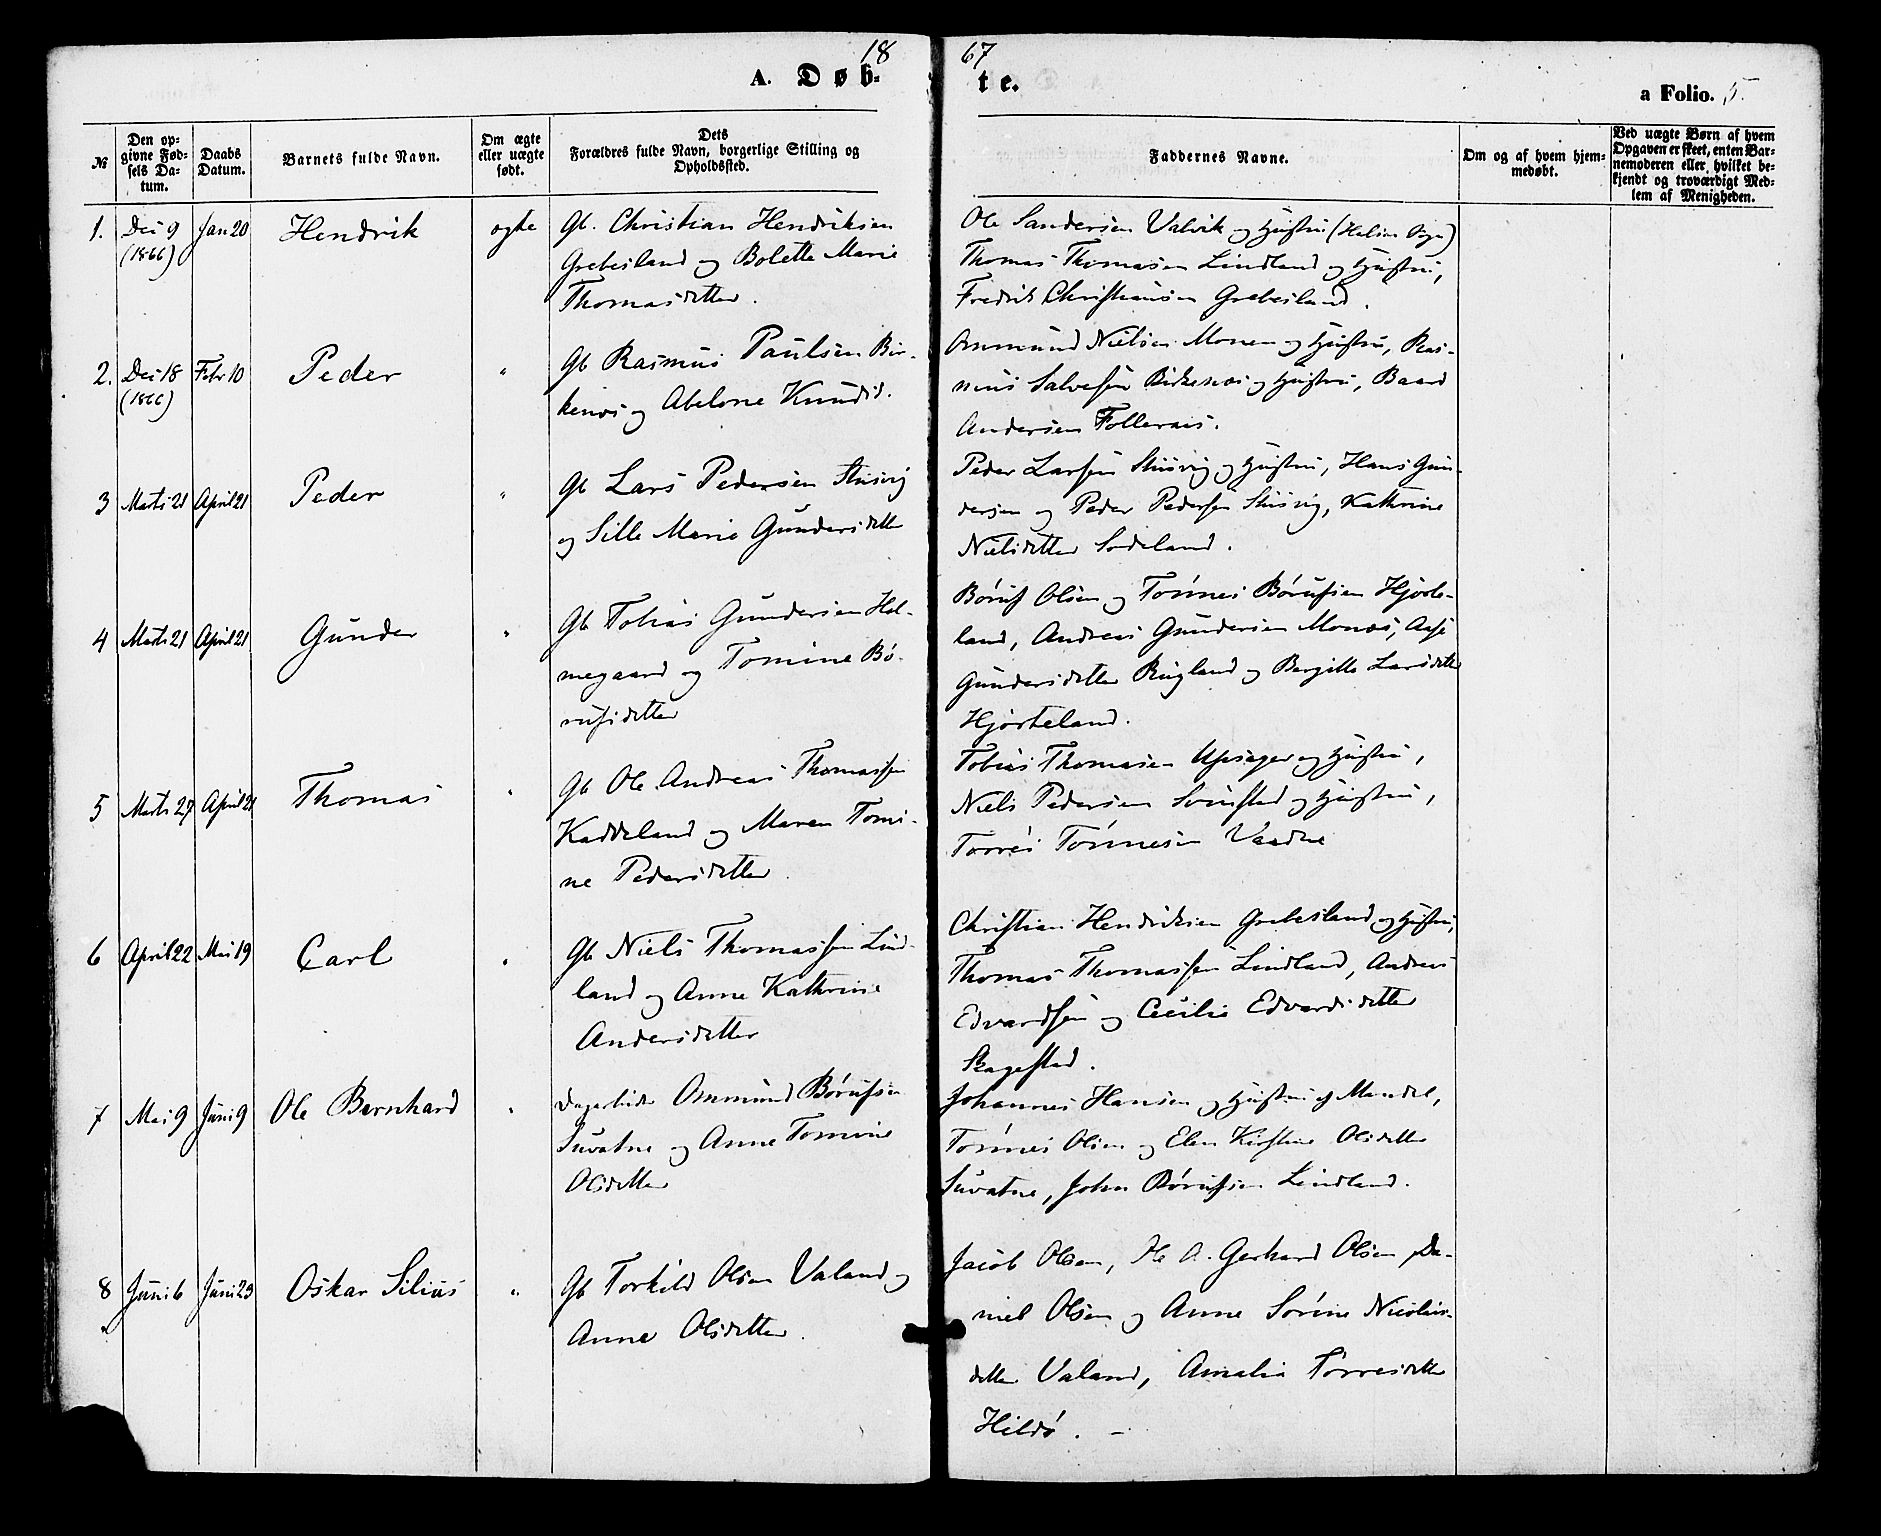 18 67
A. Døb- te.
a Folio. 5.
№
Den op-
givne Fød-
sels Da-
tum.
Daabs
Datum.
Barnets fulde Navn.
Om ægte
eller uægte
født.
Dets
Forældres fulde Navn, borgerlige Stilling og
Opholdssted.
Faddernes Navne.
Om og af hvem hjem-
medøbt.
Ved uægte Børn af hvem
Opgaven er skeet, enten Bar-
nemoderen eller hvilket be-
kjendt og troværdigt Med-
lem af Menigheden.
1. Dec 9 (1866) Jan 20 Hendrik ægte
Gb. Christian Hendriksen
Grebesland og Bolette Marie
Thomasdatter.
Ole Sandersen Valvik og Hustru (Halse Sogn)
Thomas Thomasen Lindland og Hustru,
Fredrik Christiansen Grebesland.
2. Dec 18 (1866) Febr 10 Peder "
Gb Rasmus Paulsen Bir-
kenæs og Abelone Knudsd.
Ommund Nielsen Monen og Hustru, Ras-
mus Salvesen Birkenæs og Hustru, Baard
Andersen Folleraas.
3 Marts 21 April 21 Peder "
Gb Lars Pedersen Stusvig
og Sille Marie Gundersdatter
Peder Larsen Stusvig og Hustru, Hans Gun-
dersen og Peder Pedersen Stusvig, Kathrine
Nielsdatter Sodeland.
4 Marts 21 April 21 Gunder "
Gb Tobias Gundersen Hol-
megaard og Tomine Bø-
rufsdatter
Børuf Olsen og Tønnes Børufsen Hjorte-
land, Andreas Gundersen Monæs, Aase
Gundersdatter Rugland og Bergitte Larsdatter
Hjorteland.
5 Marts 27 April 21 Thomas "
Gb Ole Andreas Thomassen
Kaddeland og Maren Tomi-
ne Pedersdatter.
Tobias Thomasen Upsager og Hustru,
Niels Pedersen og Hustru,
Torres Tønnesen Vaadne
6 April 22 Mai 19 Carl "
Gb Niels Thomassen Lind-
land og Anne Kathrine
Andersdatter
Christian Hendriksen Grebesland og Hustru,
Thomas Thomassen Lindland, Andreas
Edvardsen og Cecilie Edvardsdatter
Skagestad.
7 Mai 9 Juni 9 Ole Bernhard "
Dagarbeider Ommund Børufsen
Suvatne og Anne Tomine
Olsdatter
Johannes Hansen og Hustru af Mandal,
Tønnes Olsen og Elen Kirstine Olsdatter
Suvatne, John Børufsen Lindland.
8 Juni 6 Juni 23 Oskar Silius "
Gb Torkild Olsen Valand og
Anne Olsdatter.
Jacob Olsen, Ole A. Gerhard Olsen, Da-
niel Olsen og Anne Sørine Nicolais-
datter Valand, Amalia Torresdatter
Hildø. –